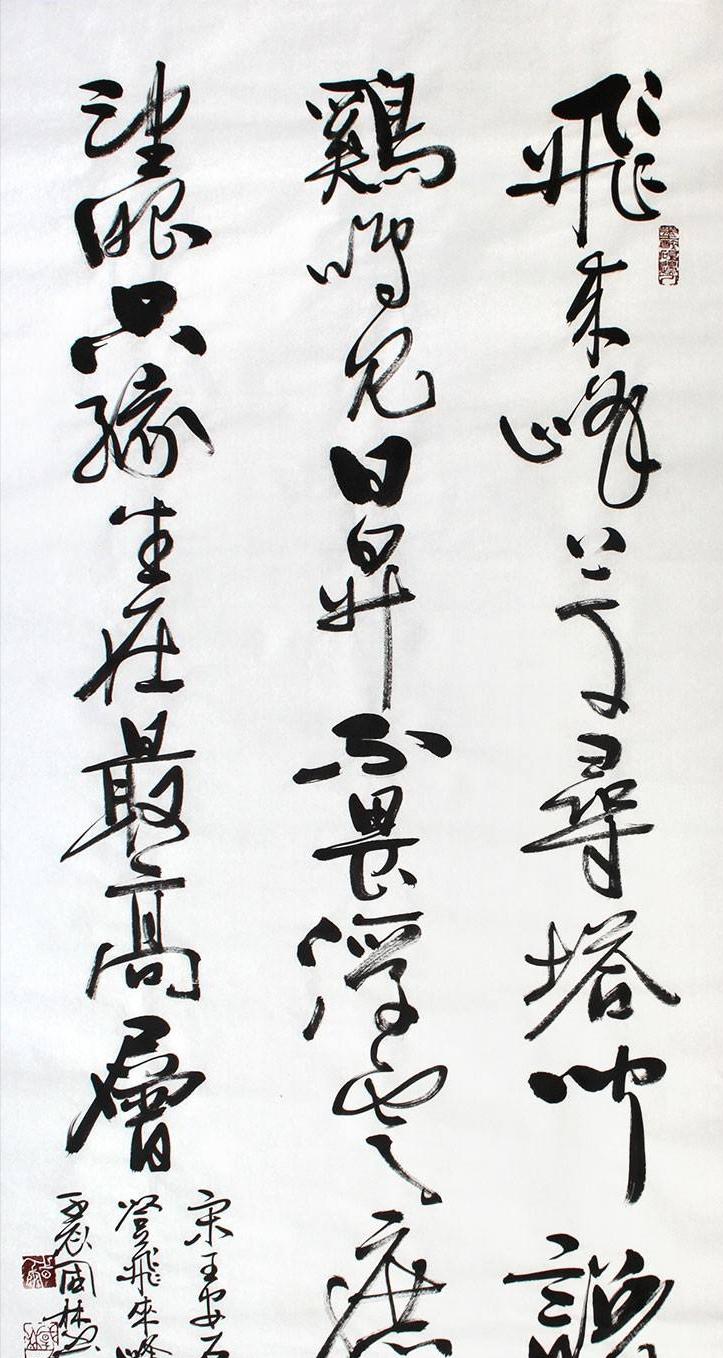 飛来峰上千尋塔聞説
鷄鳴見日昇不畏浮雲遮
望眼只緣生在最高層
宋王安石
登飛來峰